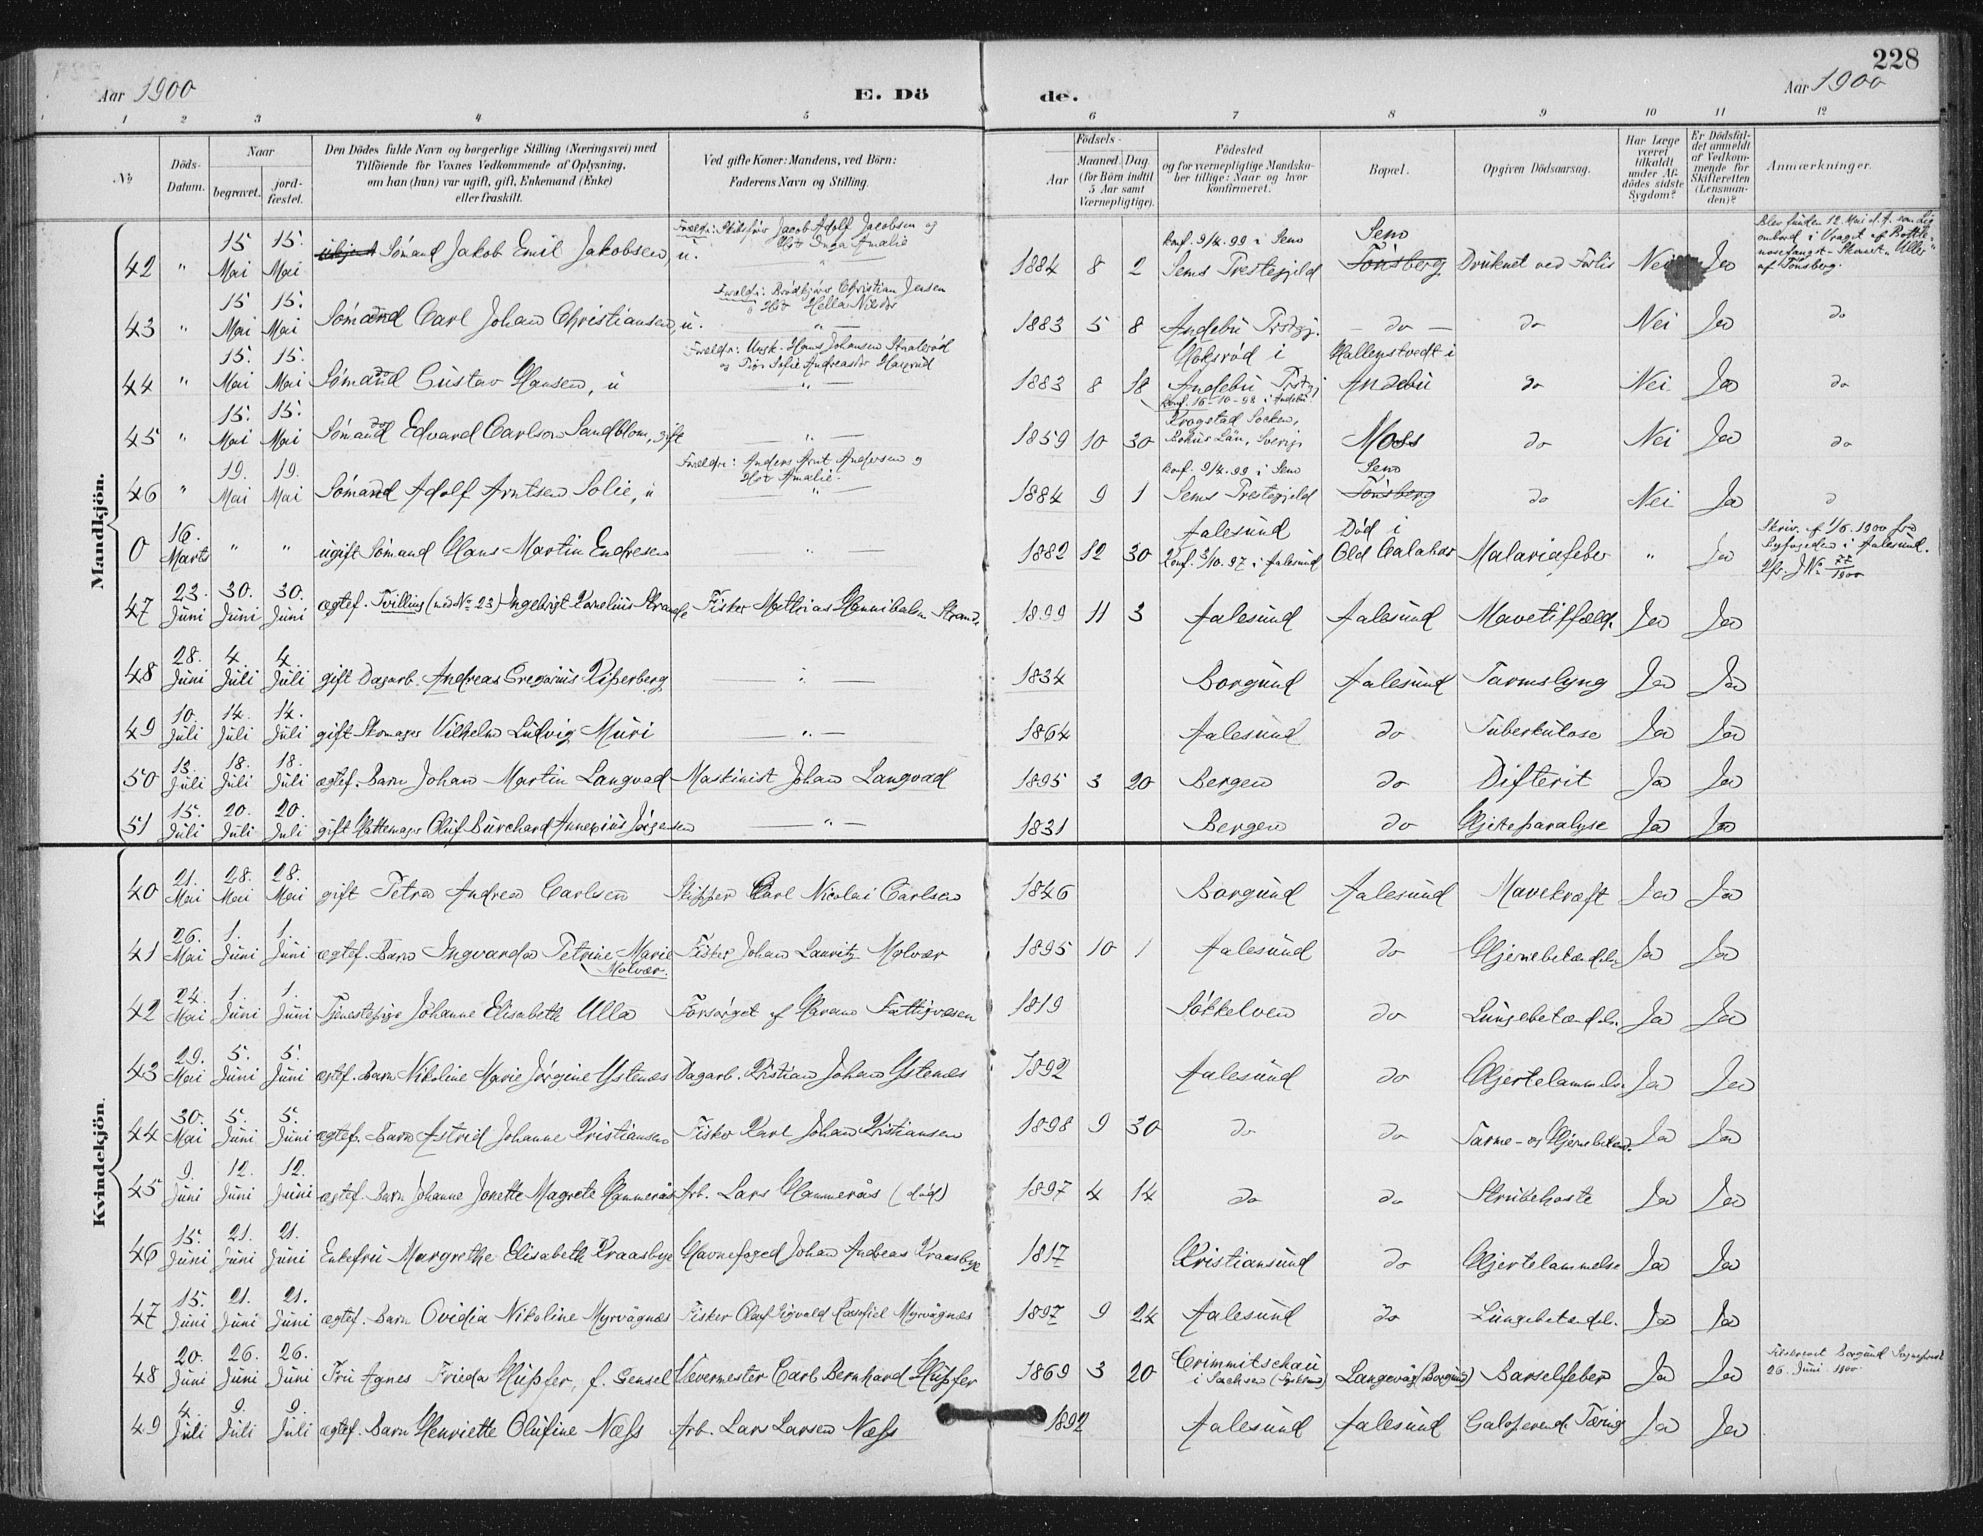 228
Aar 1900
E. Dö
de.
Aar 1900
1 2 3 4 5 6 7 8 9 10 11 12
No
Döds-Datum.
Naar
begravet.
jord-fæstet.
Den Dödes fulde Navn og borgerlige Stilling (Næringsvei) med
Tilföiende for Voxnes Vedkommende af Oplysning,
om han (hun) var ugift, gift, Enkemand (Enke)
eller fraskilt.
Ved gifte Koner: Mandens, ved Börn:
Faderens Navn og Stilling.
Födsels-
Aar
Maaned Dag
(for Börn indtil
5 Aar samt
Værnepligtige).
Födested
og for værnepligtige Mandska-
ber tillige: Naar og hvor
konfirmeret.
Bopæl.
Opgiven Dödsaarsag.
Har Læge
været
tilkaldt
under Af-
dödes sidste
Sygdom?
Er Dödsfal-
det anmeldt
af Vedkom-
mende for
Skifteretten
(Lensman-
den)?
Anmærkninger.
Mandkjön.
42 " 15 Mai 15. Mai Sömand Jakob Emil Jakobsen, u. Forældr: Jacob Adolf Jacobsen og Inga Amalie 1884 8 2 konf. 9/4. 99 i Sem Sems Prestegjeld Sem Tönsberg Druknet ved Forlis Nei Ja Blev funden 12 Mai d. A. som Lig ombord i Vraget af Bottle-nosefangst-Skonnert "Uller" af Tönsberg.
43 " 15 Mai 15. Mai Sömand Carl Johan Christiansen, u. Forældr: Christian Jensen og Hella 1883 5 8 Andebu Prstgj. do do Nei Ja do
44 " 15. Mai 15. Mai Sömand Gustav Hansen, u Forældr: Ungk. Hans Johansen og Pige Sofie Andreasdr 1883 8 18 i Andebu Prstgj konf. 16-10-98 i Andebu Hallenstvedt i Andebu do Nei Ja do
45 " 15. Mai 15. Mai Sömand Edvard Carlson Sandblom, gift " 1859 10 30 Krogstad Socken, Bohus Län, Sverige Moss do Nei Ja do
46 " 19. Mai 19. Mai Sömand Adolf Arntsen Solie, u Forældr: Anders Arnt Andersen og Amalie. 1884 9 1 konf. 9/4. 99 i Sem Sems Prestegjeld Sem Tönsberg do Nei Ja do
0 16. Marts " " ugift Sömand Hans Martin Endresen " 1882 12 30 Aalesund Konf. 3/10. 97 i Aalesund Död i Old Calabar Malariafeber " Ja Skriv. af 1/6. 1900 fra Byfogden i Aalesund. JNr. 77/1900
47 23. Juni 30. Juni 30. Juni ægtef. Tvilling (med No 23) Ingebrigt Kornelius Strande Fisker Mathias Hannibalm Strand. 1899 11 3 Aalesund Aalesund Mavetilfælde Ja Ja
48 28. Juni 4. Juli 4. Juli gift Dagarb. Andreas Gregorius Piperberg " 1834 Borgund Aalesund Tarmslyng Ja Ja
49 10. Juli 14. Juli 14. Juli gift Skomager Vilhelm Ludvig Muri " 1864 Aalesund do Tuberkulose Ja Ja
50 13. Juli 18. Juli 18. Juli ægtef. Barn Johan Martin Langvad Maskinist Johan Langvad 1895 3 20 Bergen do Difterit Ja Ja
51 15. Juli 20. Juli 20. Juli gift Hattemager Oluf Burchard Annexius Jörgensen " 1831 Bergen do Hjerteparalyse Ja Ja
Kvindekjön.
40 21. Mai 28. Mai 28. Mai gift Petra Andrea Carlsen Skipper Carl Nicolai Carlsen 1846 Borgund Aalesund Mavekræft Ja Ja
41 26. Mai 1. Juni 1. Juni ægtef. Barn Ingvarda Petrine Marie Molvær. Fisker Johan Lauritz Molvær 1895 10 1 Aalesund do Hjernebetændelse Ja Ja
42 24. Mai 1. Juni 1. Juni Tjenestepige Johanne Elisabeth Ulla Forsörget af Harams Fattigvæsen 1819 Sökkelven do Lungebetændelse Ja Ja
43 29. Mai 5. Juni 5. Juni ægtef. Barn Nikoline Marie Jörgine Ystenæs Dagarb. Kristian Johan Ystenæs 1892 Aalesund do Hjertelammelse Ja Ja
44 30. Mai 5. Juni 5. Juni ægtef. Barn Astrid Johanne Kristiansen Fisker Karl Johan Kristiansen 1898 9 30 do do Tarme- og Hjernebetænd. Ja Ja
45 9. Juni 12. Juni 12. Juni ægtef. Barn Johanne Jonette Magrete Hammerås Arb. Lars Hammerås (död) 1897 4 14 do do Strubehoste Ja Ja
46 15. Juni 21. Juni 21. Juni Enkefru Margrethe Elisabeth Kraasbye Havnefoged Johan Andreas Kraasbye 1817 Kristiansund do Hjertelammelse Ja Ja
47 15. Juni 21. Juni 21. Juni ægtef. Barn Ovidia Nikoline Myrvågnæs Fisker Olaf Sigvald Myrvågnæs 1897 9 24 Aalesund do Lungebetændel. Ja Ja
48 20. Juni 26. Juni 26. Juni Fru Agnes Frieda Hüpfer, f. Gensel Vævermester Carl Bernhard Hüpfer 1869 3 20 Crimmitschau i Sachsen (Tyskland) Langevåg (Borgund) Barselfeber Ja Ja Borgund Sogneprest 26. Juni 1900
49 4. Juli 9. Juli 9. Juli ægtef. Barn Henriette Olufine Næss Arb. Lars Larsen Næss 1892 Aalesund Aalesund Galoperend Tæring Ja Ja